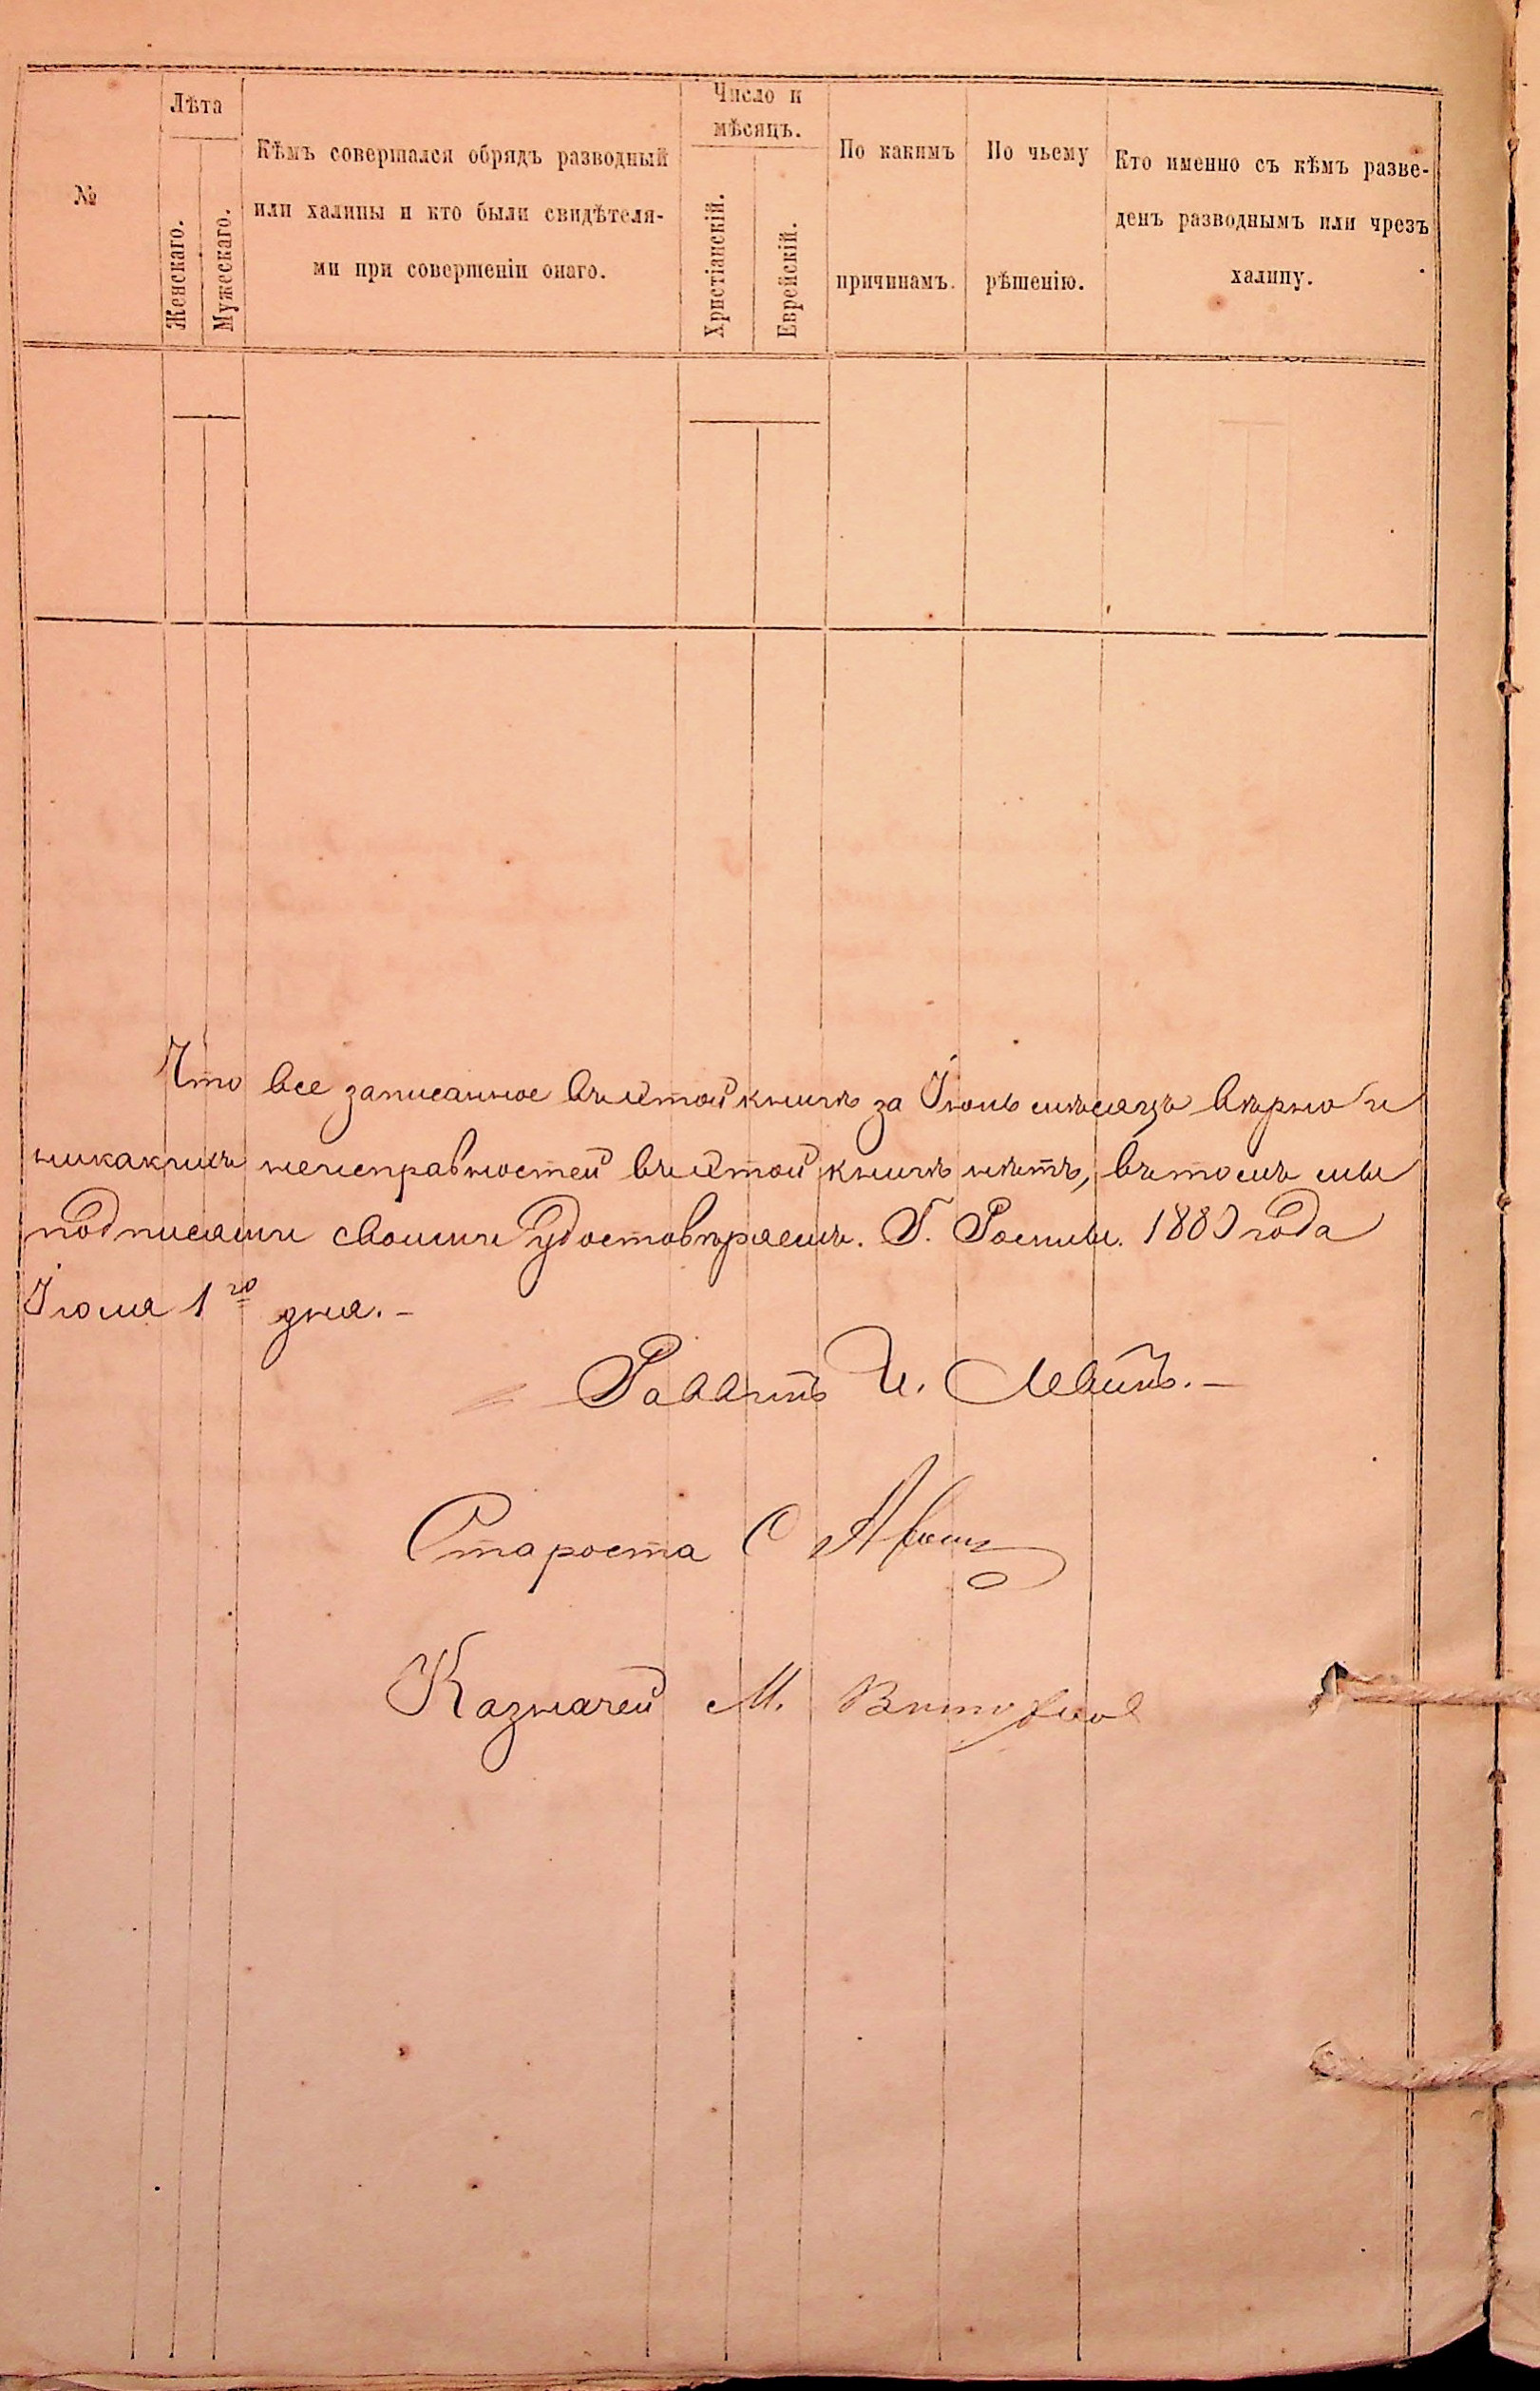 №
Лѣта
Женскаго.
Мужескаго.
Кѣмъ совершался обрядъ разводный
или халицы и кто были свидѣтеля-
ми при совершеніи онаго.
Число и
мѣсяцъ.
Христіанскій.
Еврейскій.
По какимъ
причинамъ.
По чьему
рѣшенію.
Кто именно съ кѣмъ разве-
денъ разводнымъ или чрезъ
халицу.
Что все записанное въ этой книгѣ за Іюнь мѣсяцъ вѣрно и
никакихъ неисправностей въ этой книгѣ нѣтъ, въ томъ мы
подписами своими удостовѣряемъ. Г. Ромны. 1880 года
Іюля 1го дня.-
Раввинъ И. Левинъ.-
Староста С
Казначей М.